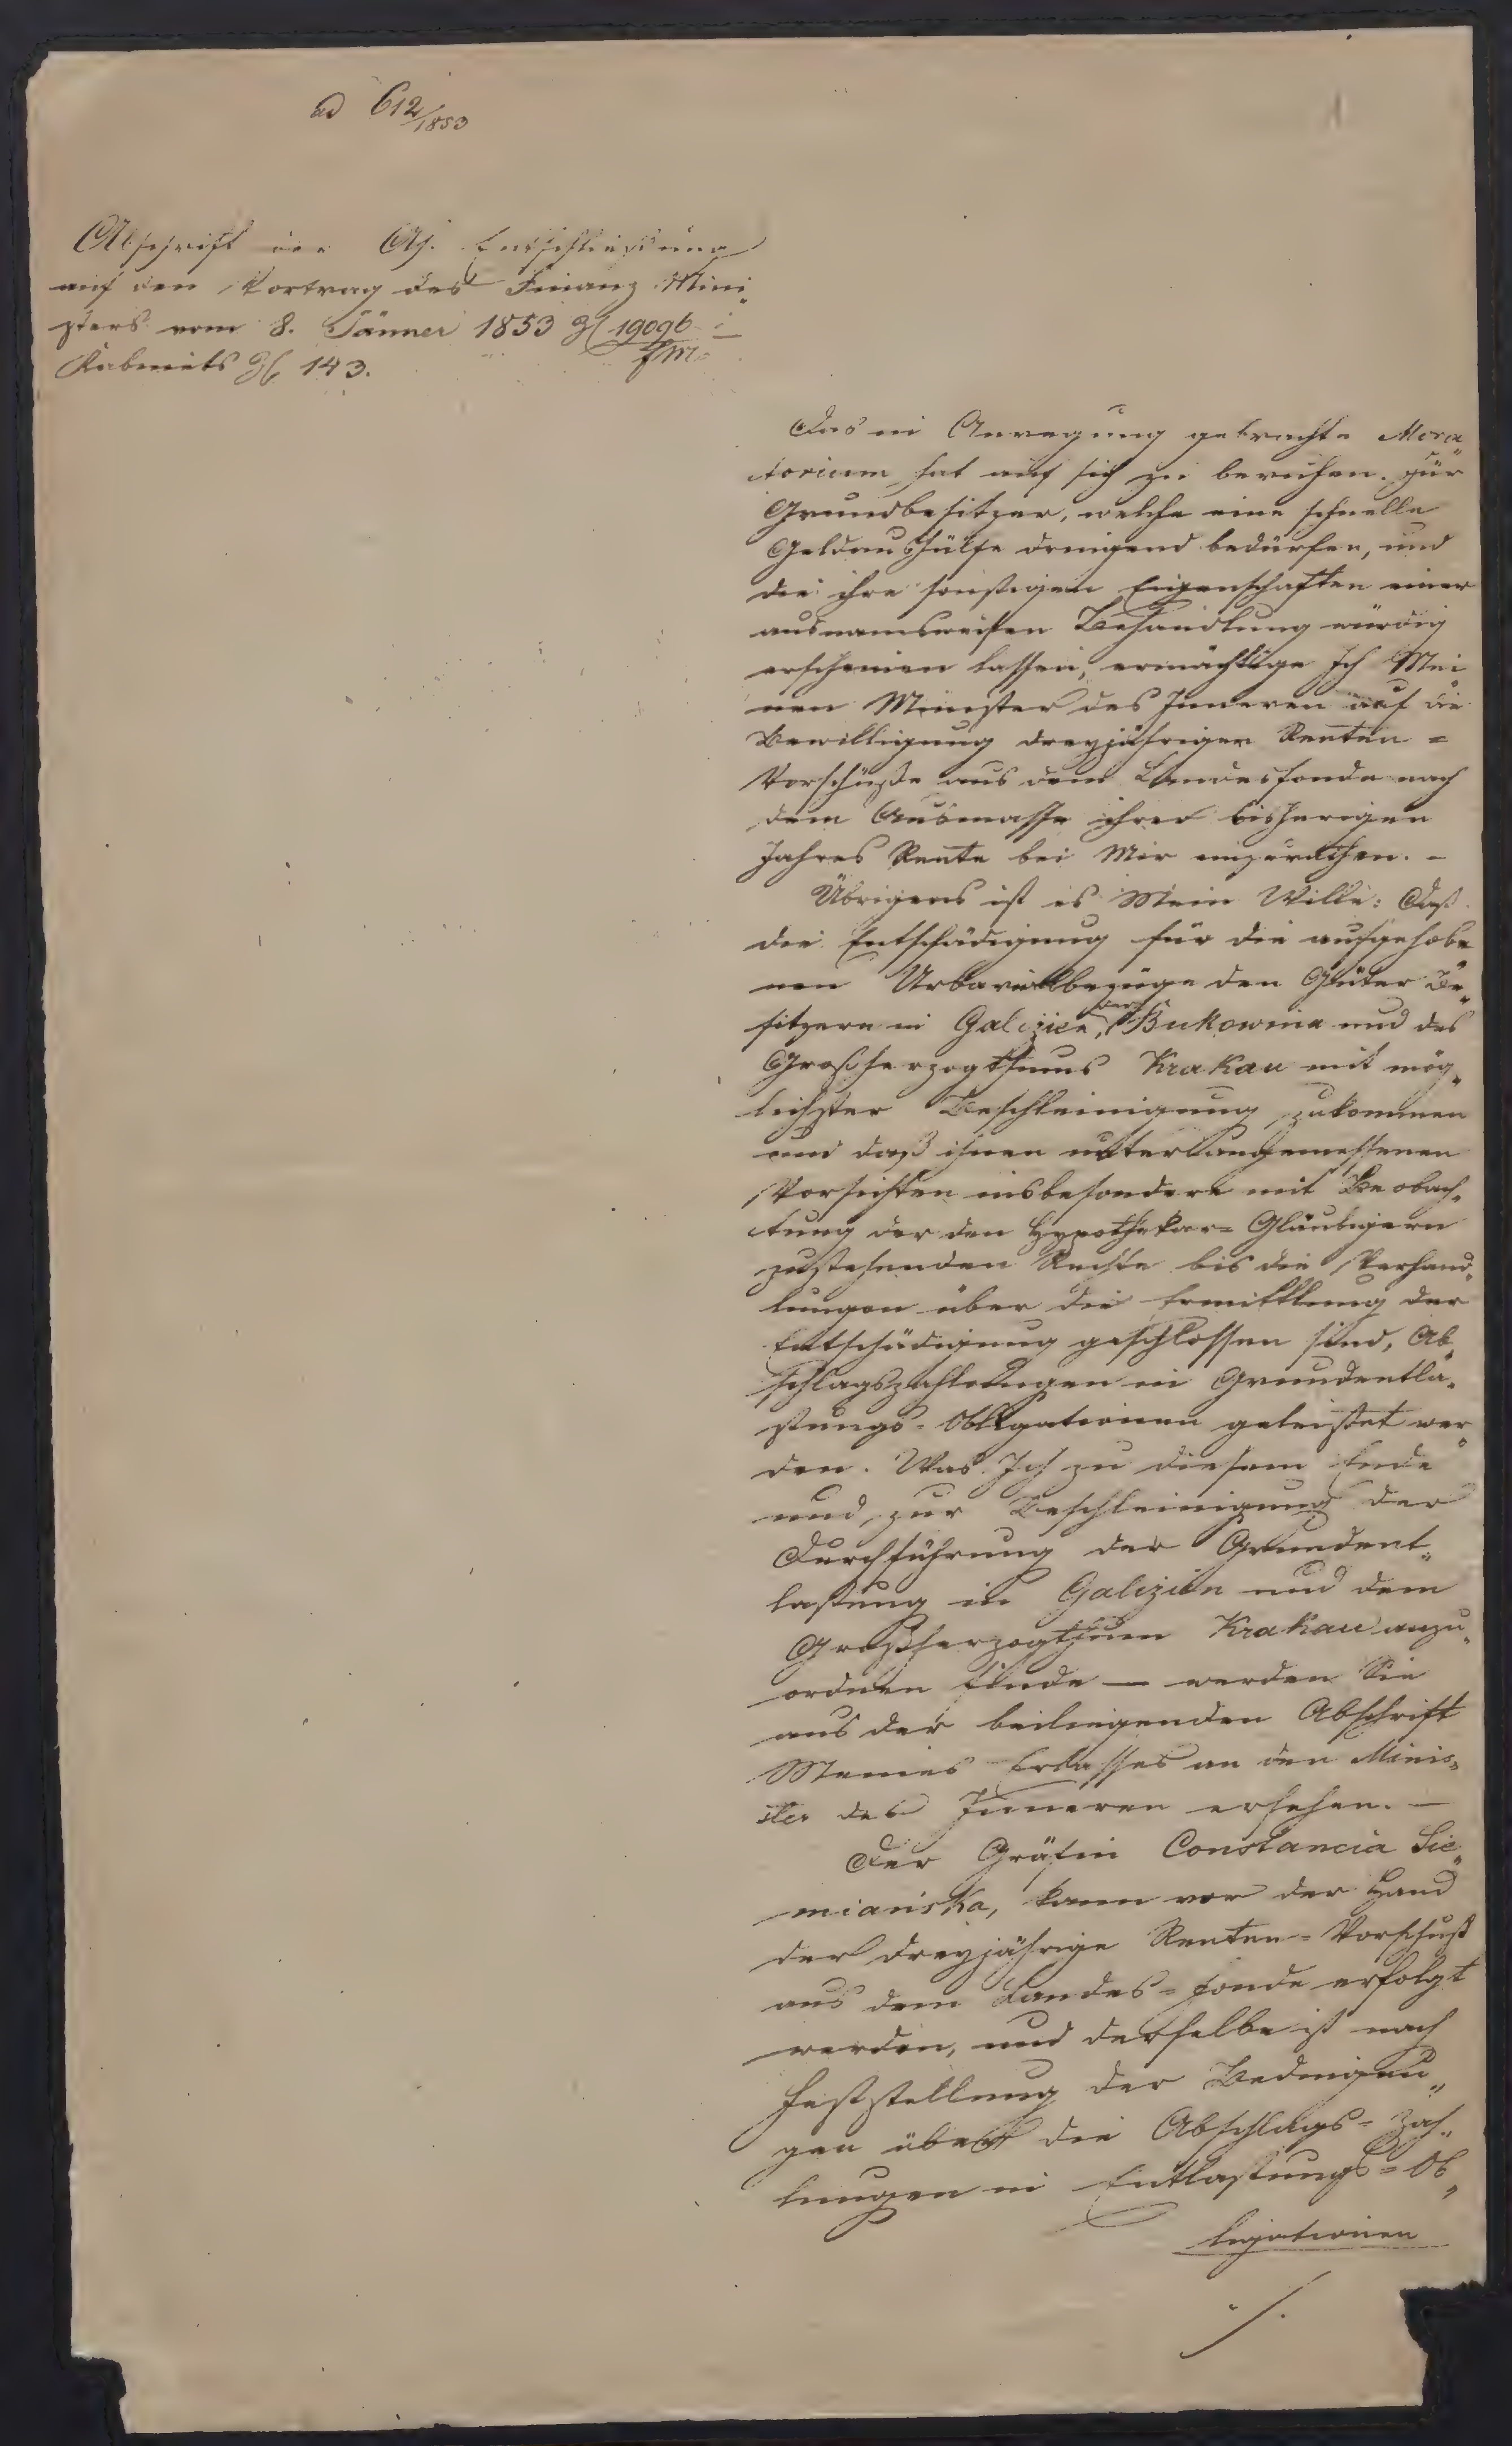 ad 612/1853
1
Abschrift der Ah. Entschließung
auf den Vortrag des Finanz Mini„
sters vom 8. Jänner 1853 Zl 19096
FM
Kabinets Zl 143.
Das in Anregung gebrachte Mora„
torium hat auf sich zu beruhen. Für
Grundbesitzer, welche eine schnelle
Geldaushülfe dringend bedürfen, und
die ihre sonstigen Eigenschaften einer
ausnamsweisen Behandlung würdig
erscheinen lassen, ermächtige Ich Mei„
nen Minister des Inneren auf die
Bewilligung dreyjähriger Renten =
Vorschüße aus dem Landesfonde nach
dem Ausmasse ihrer bisherigen
Jahres Rente bei Mir einzurathen. –
Übrigens ist es Mein Wille: Daß
die Entschädigung für die aufgehobe„
nen Urbarialbezüge den Güter Be„
sitzern in Galizien, der Bukowina und des
Großherzogthums Krakau mit mög„
lichster Beschleinigung zukommen
und daß ihnen unter angemessenen
Vorsichten insbesondere mit Beobach„
tung der den Hypothekar= Gläubigern
zustehenden Rechte bis die Verhand„
lungen über die Ermittlung der
Entschädigung geschlossen sind, Ab„
schlagszahlungen in Grundentla„
stungs= Obligationen geleistet wer„
den. Was Ich zu diesem Ende
und zur Beschleinigung der
Durchführung der Grundent„
lastung in Galizien und dem
Großherzogthum Krakau anzu„
ordnen finde — werden Sie
aus der beiliegenden Abschrift
Meines Erlasses an den Minis„
ter des Inneren ersehen. —
Der Gräfin Constancia Sie„
miańska, kann vor der Hand
der dreyjährige Renten= Vorschuß
aus dem Landes= fonde erfolgt
werden, und derselbe ist nach
Feststellung der Bedingun„
gen über die Abschlags= Zah„
lungen in Entlastungs= Ob„
ligationen
./.